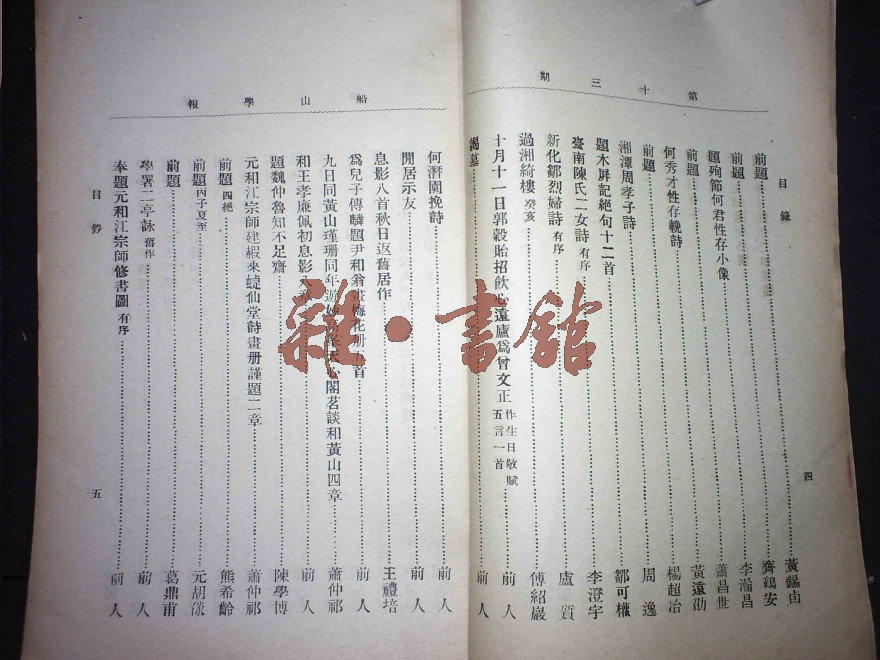 第十三期
目錄
四
前題 黃錫卣
前題 齊鶴安
前題 李瀚昌
題殉節何君性存小像 蕭昌世
黃遠劭
何秀才性存輓詩 楊超冶
前題 周逸
湘潭周孝子詩 鄒可權
題木屏記絕句十二首 李澄宇
臺南陳氏二女詩 有序 盧質
新化鄒烈婦詩 有序 傅紹巖
過湘綺樓 癸亥 前人
十月十一日郭穀貽招飲心遠廬為曾文正作生日敬賦五言一首
謁墓 前人
船山學報
何潛園挽詩 前人
閒居示友 前人
息影八首秋日返舊居作 王禮培
為兒子傳麟題尹和翁畫梅花册五首 前人
九日同黃山瑾珊同年遊 閣茗談和黃山四章 蕭仲祁
和王孝廉佩初息影八 前人
題魏仲魯知不足齋 陳學博
元和江宗師建椵來蝳仙堂詩畫册謹題二章 蕭仲祁
前題 四絕 熊希齡
前題 丙子夏至 元胡燚
前題 葛鼎甫
學署二亭詠 舊作 前人
奉題元和江宗師修書圖 有序 前人
目錄
五
雜・書館